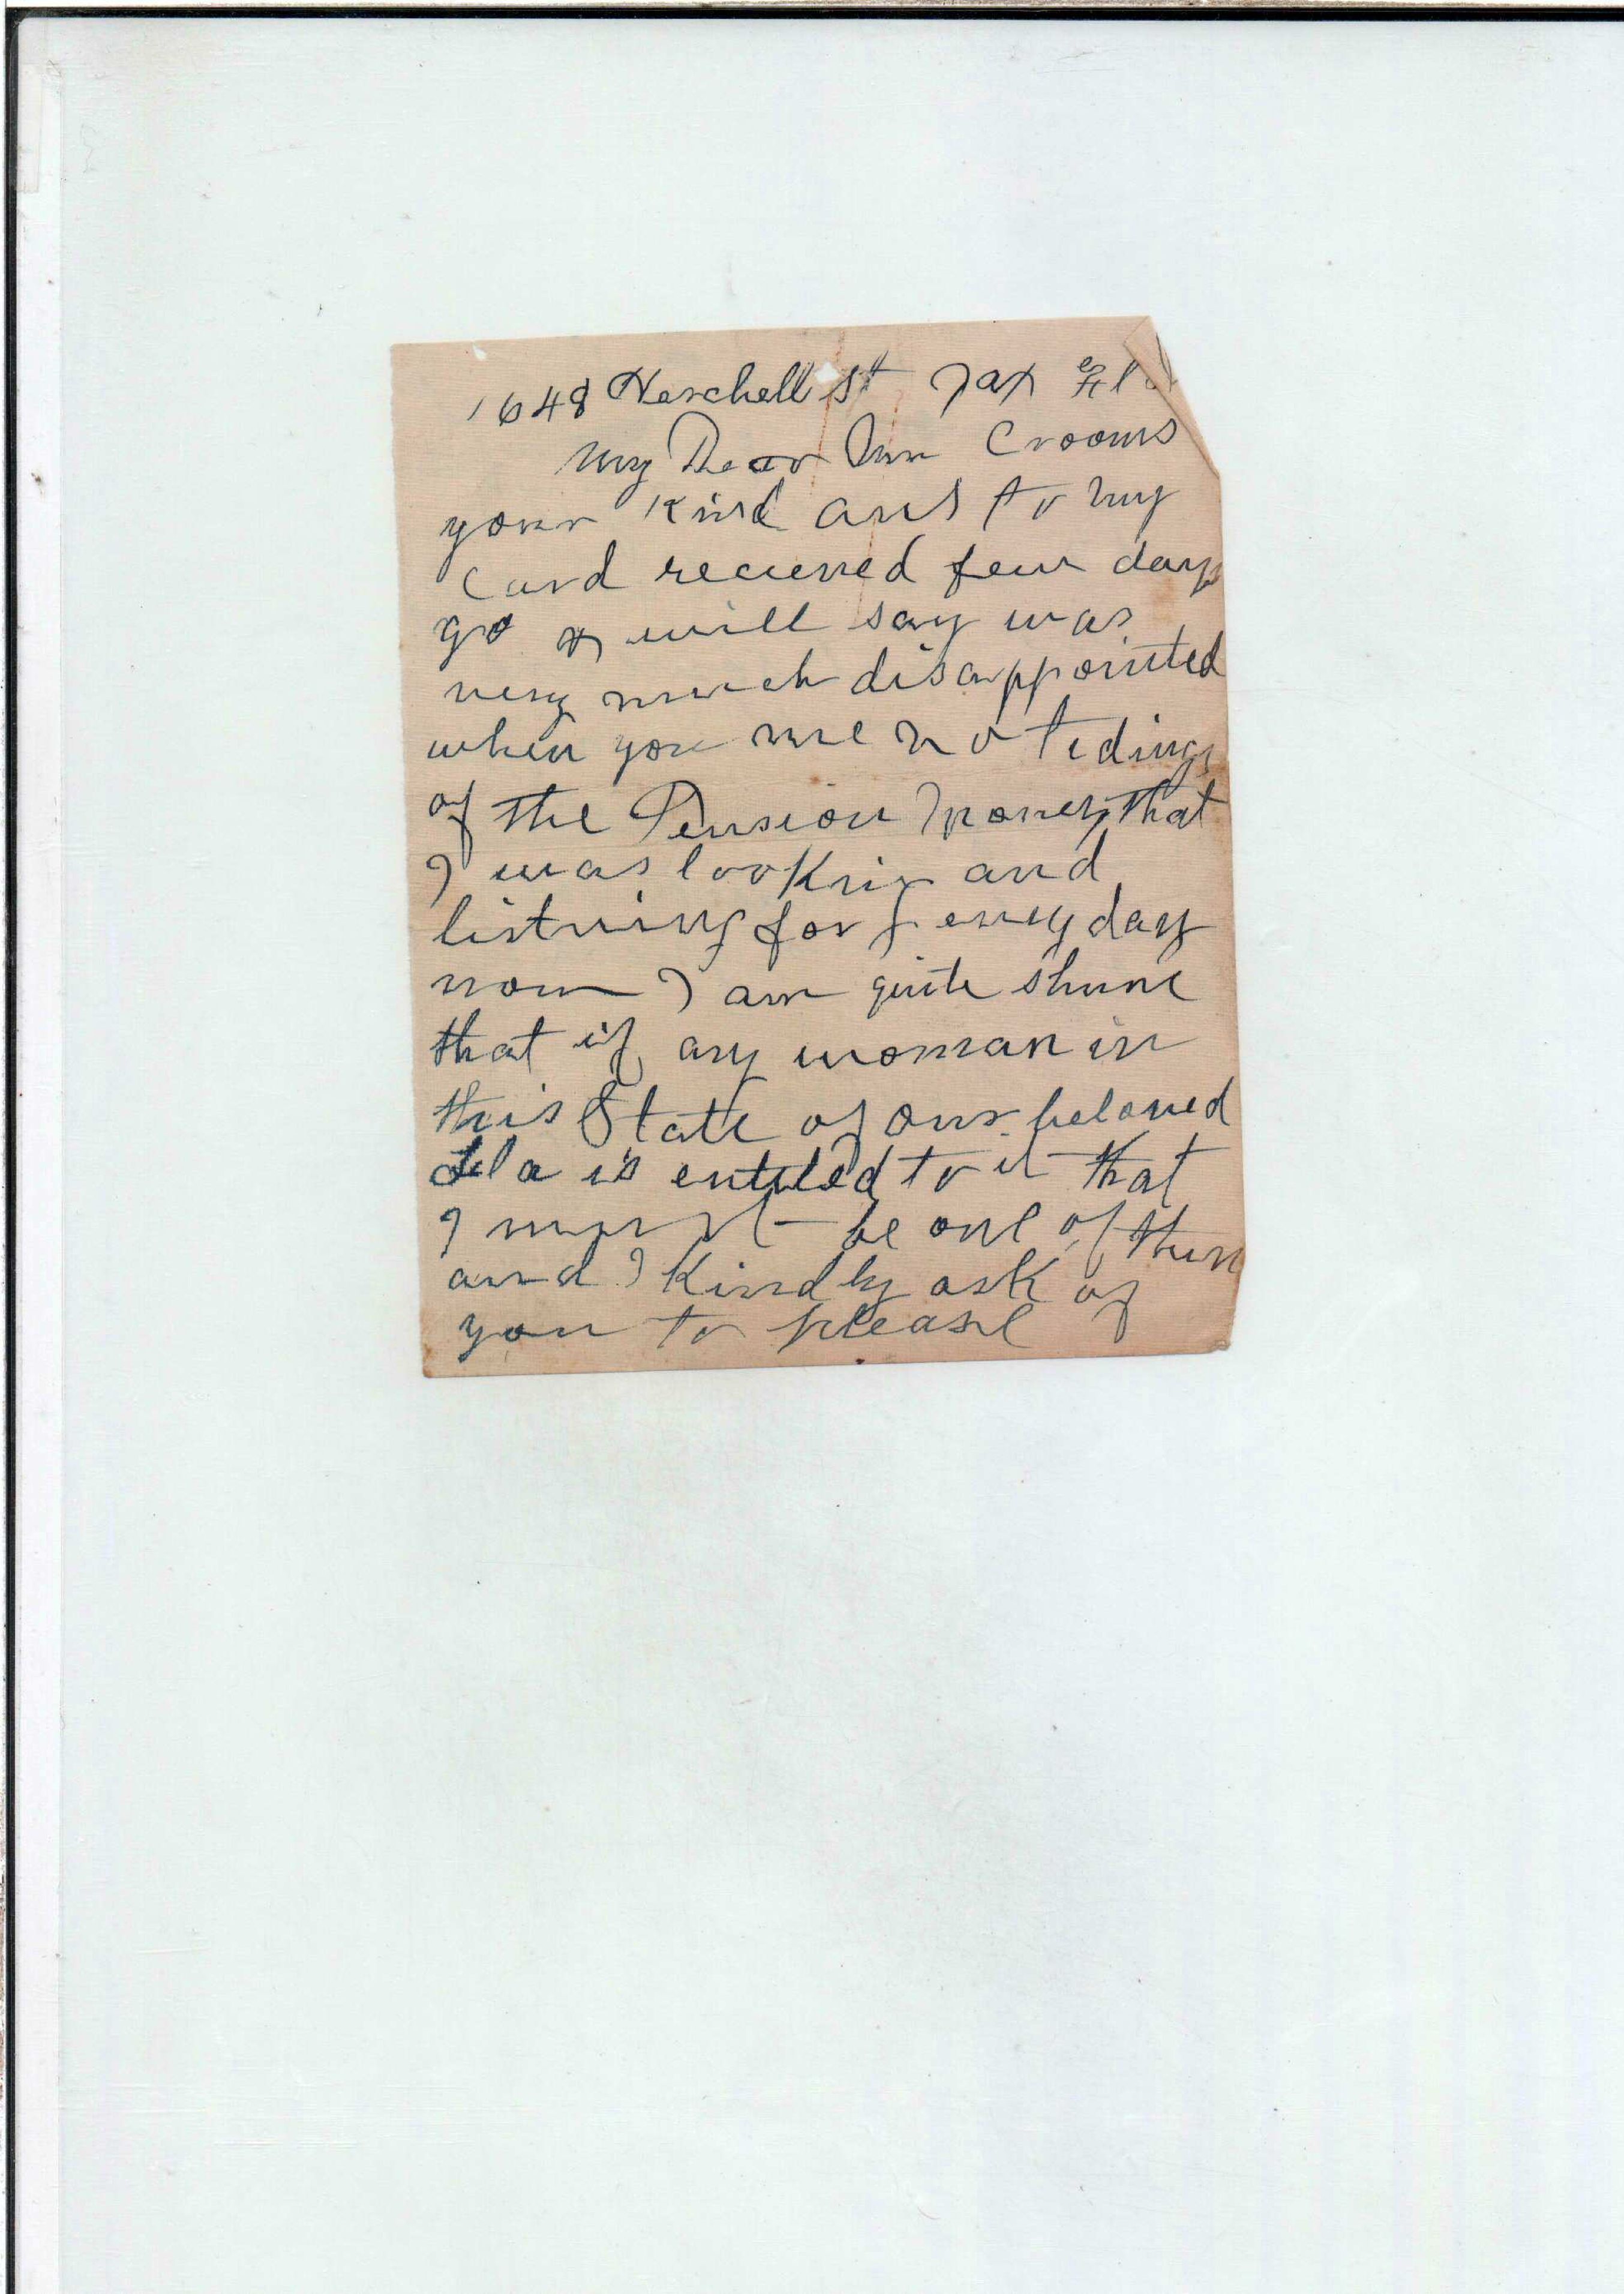 1648 Herschell St Jax Fl
My Dear Mr Crooms
your kind ans to my
Card recieved few days
go & will say was
very much disappointed
when you me no tidings
of the Pension Money that
I was lookin and
listning for every day
now I am quite shure
that if any woman in
this State of our beloved
Fla is entitled to it that
I must be one of them
and I Kindly ask of
you to please